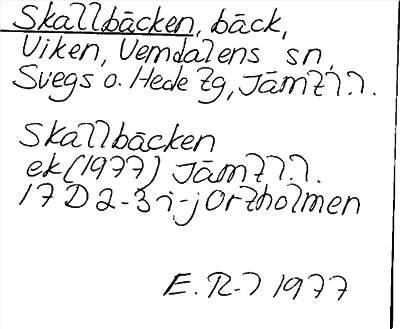 Skallbäcken, bäck,
Viken, Vemdalens sn,
Svegs o. Hede tg, Jämtl.
Skallbäcken
ek (1977) Jämtl.
17 D 2-3 i-j Örtholmen
E. R-l 1977